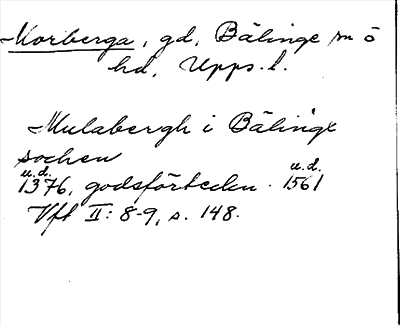 Norberga, gd, Bälinge sn ö
hd, Upps. l.
Mulabergh i Bälinge
socken
u.d. u.d.
1376, godsförteckn. 1561
Vfl II: 8-9, s. 148.